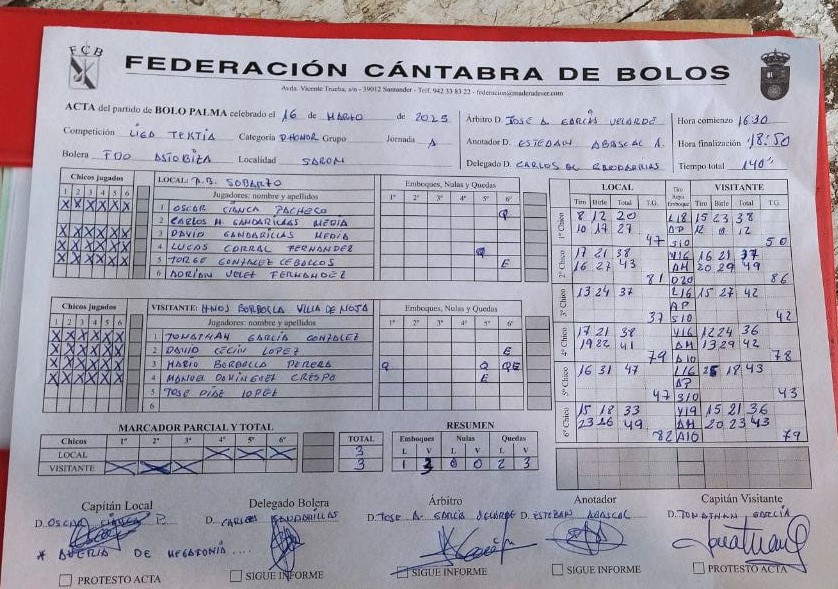 FCB
FEDERACIÓN CÁNTABRA DE BOLOS
Avda. Vicente Trueba, s/n - 39012 Santander - Telf. 942 33 83 22 - federacion@maderadeser.com
ACTA del partido de BOLO PALMA celebrado el 16 de MARZO de 2025
Árbitro D. JOSE A. GARCÍA VELARDE
Hora comienzo 16:30
Competición LIGA TEKTIA Categoría D.HONOR Grupo Jornada 1
Anotador D. ESTEBAN ABASCAL A.
Hora finalización 18:50
Bolera FDO ASTOBIZA Localidad SARON
Delegado D. CARLOS GANDARILLAS
Tiempo total 140"
Chicos jugados
1 2 3 4 5 6
LOCAL: P.B. SOBARZO
Jugadores: nombre y apellidos
Emboques, Nulas y Quedas
1º 2º 3º 4º 5º 6º
X X X X X X 1 OSCAR CIANCA PACHECO Q
2 CARLOS M. GANDARILLAS MEDIA
X X X X X X 3 DAVID GANDARILLAS MEDIA
X X X X X X 4 LUCAS CORRAL FERNANDEZ Q
X X X X X X 5 JORGE GONZALEZ CEBALLOS E
6 ADRIAN VELEZ FERNANDEZ
Chicos jugados
1 2 3 4 5 6
VISITANTE: HNOS BORBOLLA VILLA DE NOJA
Jugadores: nombre y apellidos
Emboques, Nulas y Quedas
1º 2º 3º 4º 5º 6º
X X X X X X 1 JONATHAN GARCÍA GONZALEZ
X X X X X X 2 DAVID CECIN LOPEZ E
X X X X X X 3 MARIO BORBOLLA PERERA Q Q QE
X X X X X X 4 MANUEL DOMINGUEZ CRESPO E
5 JOSE DIAZ LOPEZ
6
LOCAL VISITANTE
Tiro Birle Total T.G. Tiro Raya Emboque Tiro Birle Total T.G.
1º Chico 8 12 20 L18 15 23 38
10 17 27 AP 12 0 12
47 S10 50
2º Chico 17 21 38 V16 16 21 37
16 27 43 AM 20 29 49
81 D20 86
3º Chico 13 24 37 L16 15 27 42
AP
37 S10 42
4º Chico 17 21 38 V16 12 24 36
19 22 41 AM 13 29 42
79 A10 78
5º Chico 16 31 47 L16 25 18 43
AP
47 S10 43
6º Chico 15 18 33 V19 15 21 36
23 26 49 AM 20 23 43
82 A10 79
MARCADOR PARCIAL Y TOTAL
Chicos 1º 2º 3º 4º 5º 6º TOTAL
LOCAL X X X 3
VISITANTE X X X 3
RESUMEN
Emboques Nulas Quedas
L V L V L V
1 3 0 0 2 3
Capitán Local
D. OSCAR CIANCA P.
Delegado Bolera
D. CARLOS GANDARILLAS
Árbitro
D. JOSE A. GARCÍA VELARDE
Anotador
D. ESTEBAN ABASCAL
Capitán Visitante
D. JONATHAN GARCÍA
* AVERIA DE MEGAFONIA ....
PROTESTO ACTA
SIGUE INFORME
SIGUE INFORME
SIGUE INFORME
PROTESTO ACTA